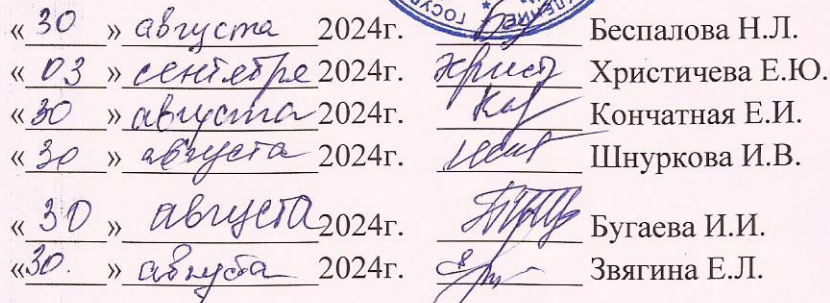 « 30 » августа 2024г. Беспалова Н.Л.
« 03 » сентября 2024г. Христичева Е.Ю.
« 30 » августа 2024г. Кончатная Е.И.
« 30 » августа 2024г. Шнуркова И.В.
« 30 » августа 2024г. Бугаева И.И.
« 30. » августа 2024г. Звягина Е.Л.